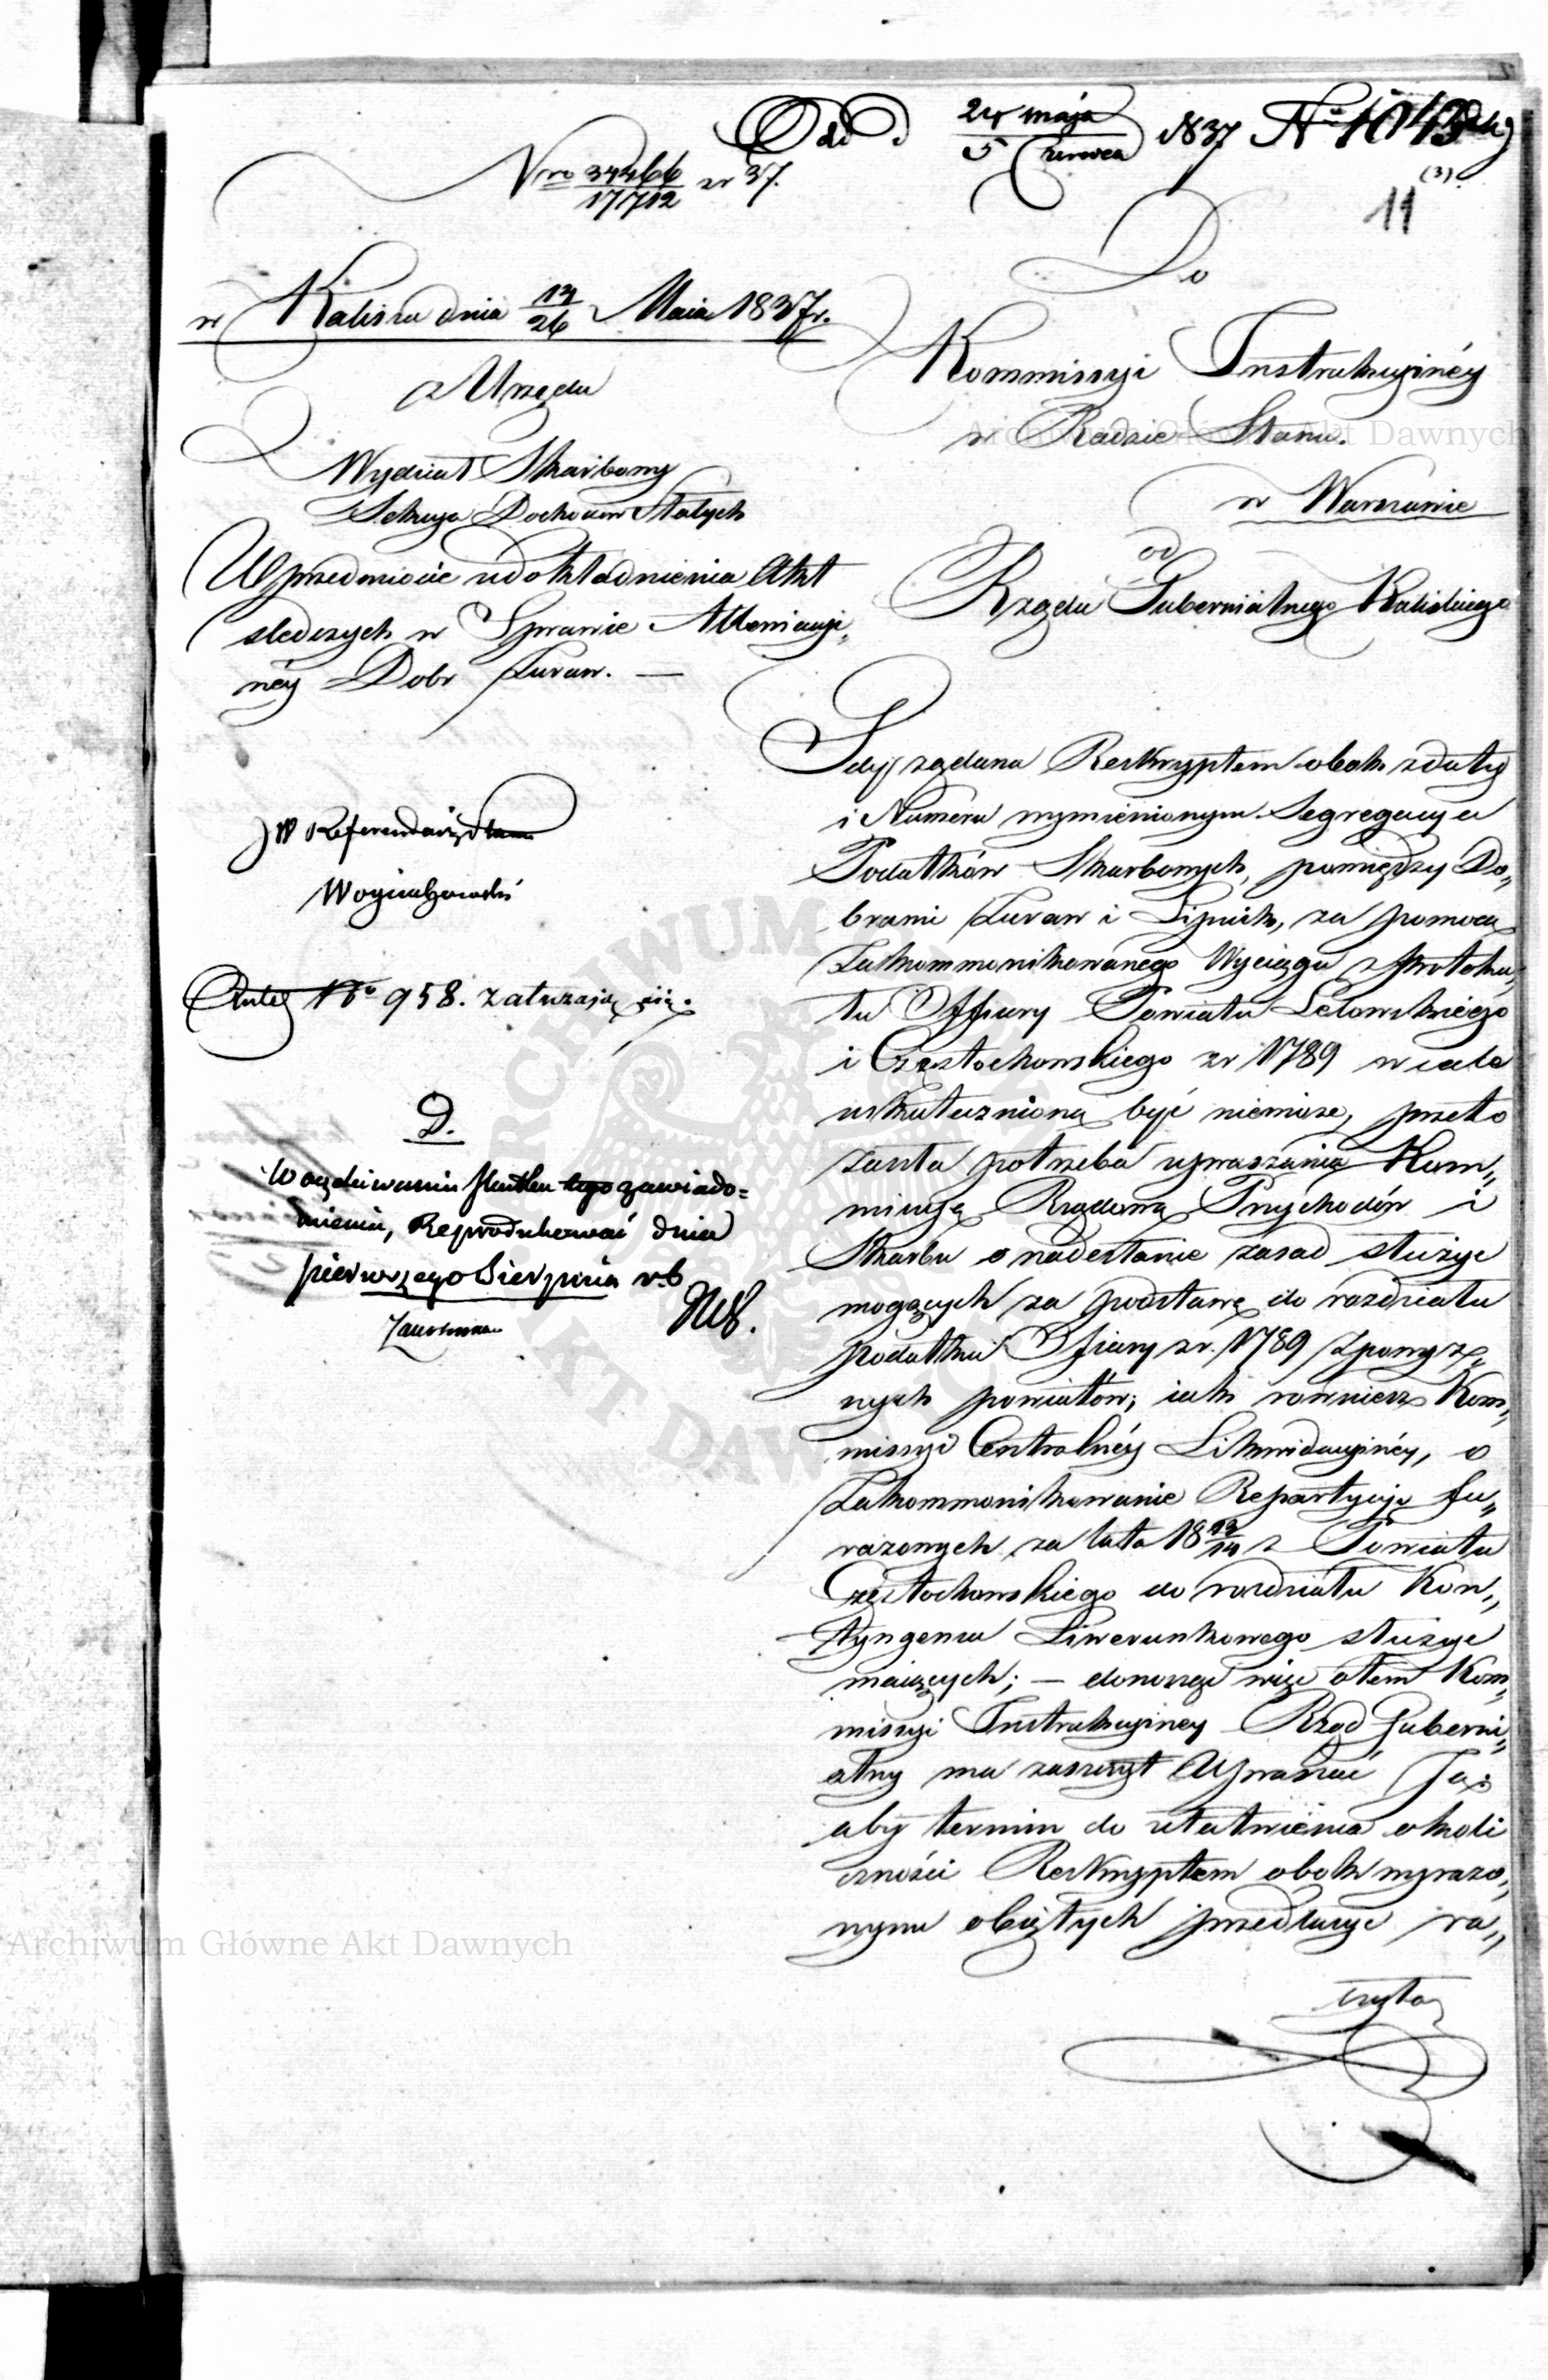 Odd 24 maja / 5 Czerwca 1837 No 1043
(3)
11
Nro 34466 / 17712 zr 37.
w Kaliszu dnia 14/26 Maia 1837r.
z Urzędu
Wydział Skarbowy
Sekcya Dochodów Stałych
W przedmiocie udokładnienia Akt
sledczych w Sprawie Allewiacyi„
néy Dobr Żuraw. —
JW Referendarz Stanu
Woyciechowski
Akta No 958. załączają się.
D.
W oczekiwaniu skutku tego zawiado=
mienia, Reprodukować dnia
pierwszego Sierpnia r.b
Do
Kommissyi Instrukcyinéy
w Radzie Stanu.
w Warszawie
od
Rządu Gubernialnego Kaliskiego
Gdy żądana Reskryptem obok zdaty
i Numeru wymienionym Segregacya
Podatków Skarbowych, pomiędzy Do„
brami Żuraw i Lipnik, za pomocą
Zakommunikowanego Wyciągu z protoku„
łu Offiary Powiatu Lelowskiego
i Częstochowskiego zr 1789 w cale
uskutecznioną być niemoże, przeto
zaszła potrzeba upraszania Kom„
missyą Rządową Przychodów i
Skarbu o nadesłanie zasad służyć
mogących za podstawę do rozdziału
podatku Ofiary zr. 1789 z powyższ„
nych powiatów; iak rownież Kom„
missyi Centralnéy Likwidacyinéy, o
Zakommunikowanie Repartycyi fu„
rażowych za lata 18 13/14 z Powiatu
Częstochowskiego do rozdziału Kon„
tyngensu Liwerunkowego służyć
maiących; — donosząc więc otem Kom„
missyi Instrukcyiney Rząd Guberni„
alny ma zaszczyt Upraszać Ją
aby termin do ułatwienia okoli
czności Reskryptem obok wyrażo„
nym obiętych przedłużyć ra„
czyła
Archiwum Główne Akt Dawnych
Archiwum Główne Akt Dawnych
ARCHIWUM GŁÓWNE AKT DAWNYCH